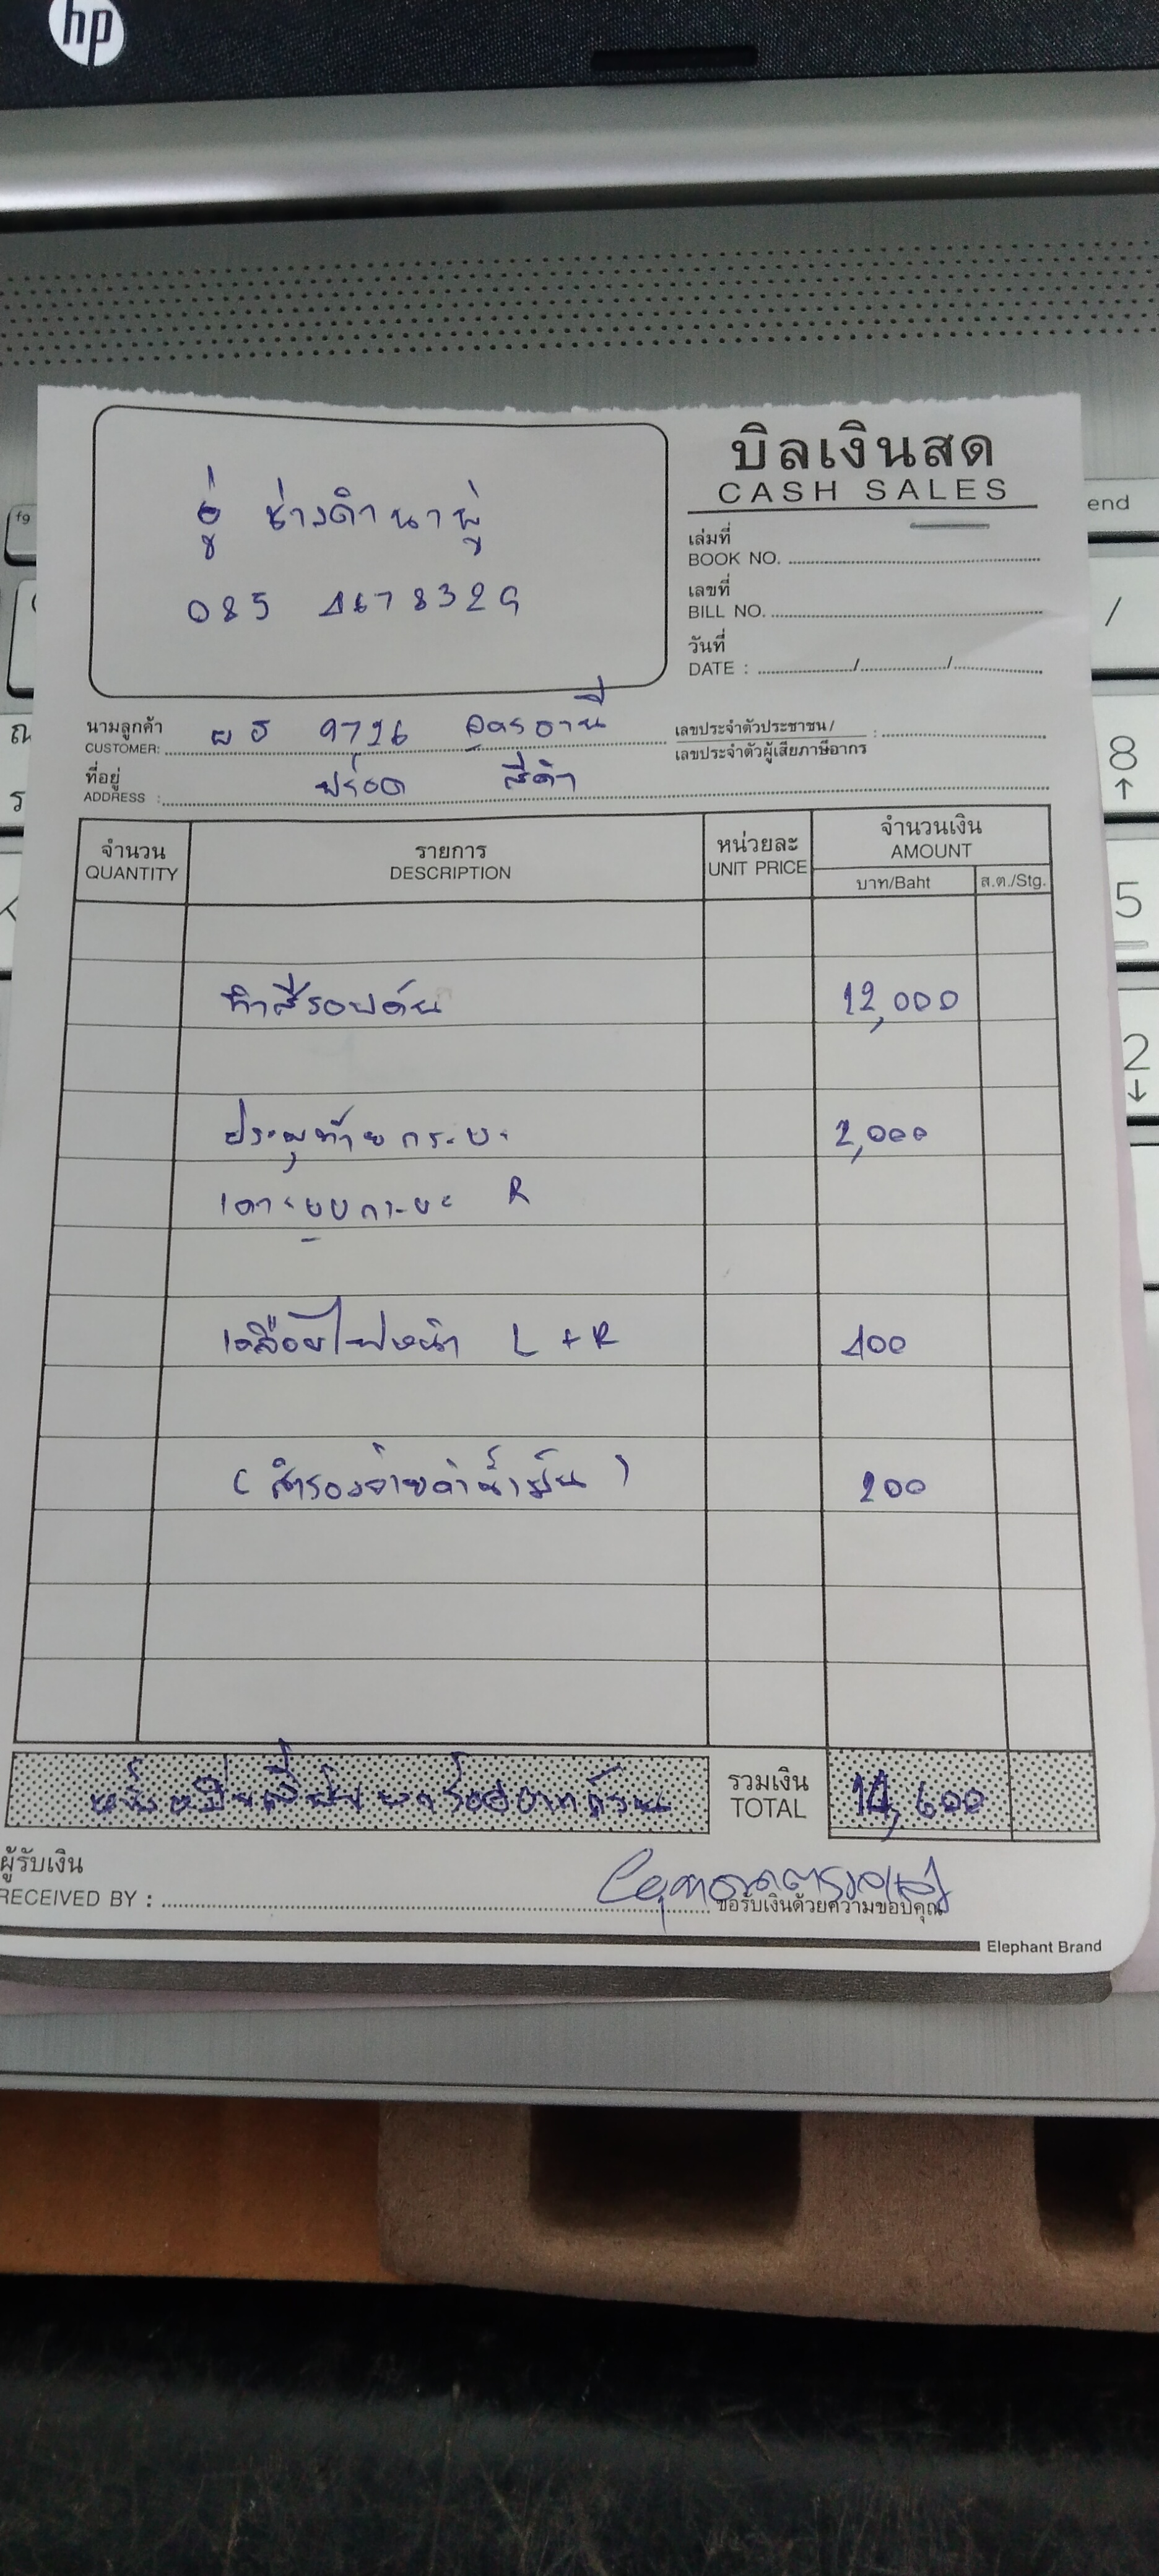 hp
บิลเงินสด
CASH SALES
อู่ ช่างดำนาพู่
085 4678329
เล่มที่
BOOK NO.
เลขที่
BILL NO.
วันที่
DATE : / /
นามลูกค้า
CUSTOMER: ผจ 9726 อุดรธานี
เลขประจำตัวประชาชน/
เลขประจำตัวผู้เสียภาษีอากร :
ที่อยู่
ADDRESS : สีดำ
จำนวน
QUANTITY
รายการ
DESCRIPTION
หน่วยละ
UNIT PRICE
จำนวนเงิน
AMOUNT
บาท/Baht
ส.ต./Stg.
ทำสีรอบคัน 12,000
ประตูท้ายกระบะ 2,000
เคาะมุมกระบะ R
เคลือบไฟหน้า L + R 400
(สำรองจ่ายค่าน้ำมัน) 200
หนึ่งหมื่นสี่พันหกร้อยบาทถ้วน
รวมเงิน
TOTAL
14,600
ผู้รับเงิน
RECEIVED BY :
ขอรับเงินด้วยความขอบคุณ
Elephant Brand
end
/
8
5
2